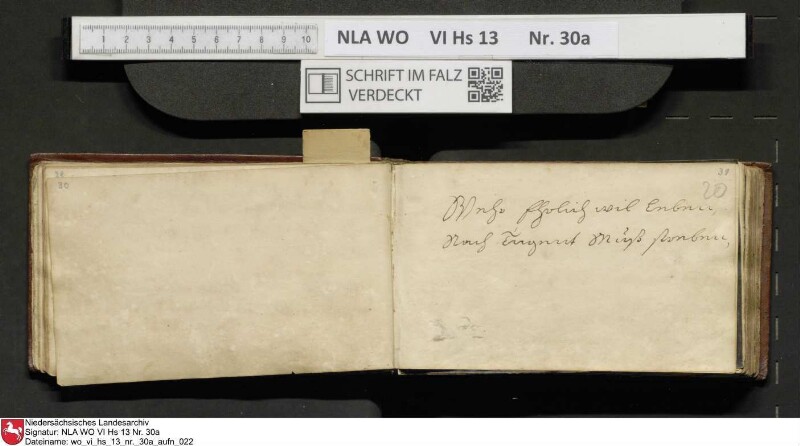 1 2 3 4 5 6 7 8 9 10
NLA WO VI Hs 13 Nr. 30a
SCHRIFT IM FALZ
VERDECKT
30
39
20
Wehr Ehrlich wil leben,
Nach Tugent Muß streben,
Niedersächsisches Landesarchiv
Signatur: NLA WO VI Hs 13 Nr. 30a
Dateiname: wo_vi_hs_13_nr._30a_aufn_022